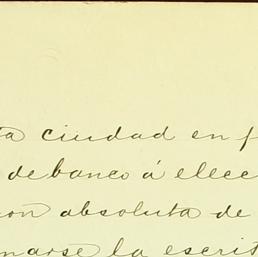 ta ciudad en f
de banco á ellec
on absoluta de
narse la escrit